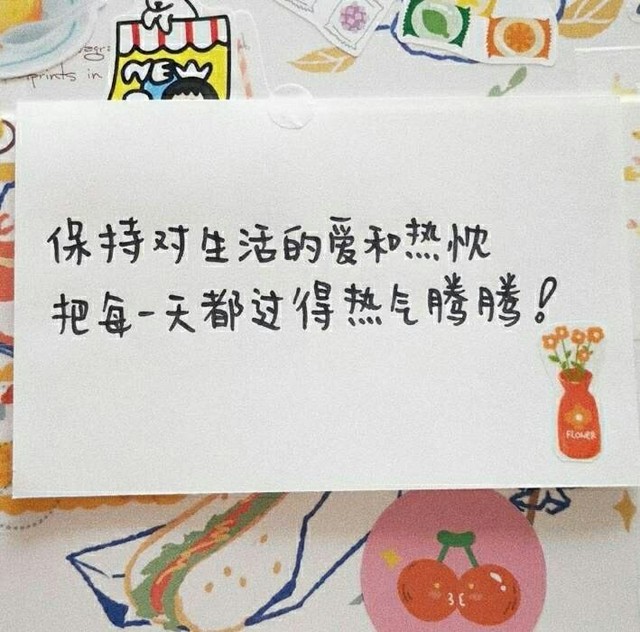 prints in
NEW
保持对生活的爱和热忱
把每一天都过得热气腾腾！
FLOWER